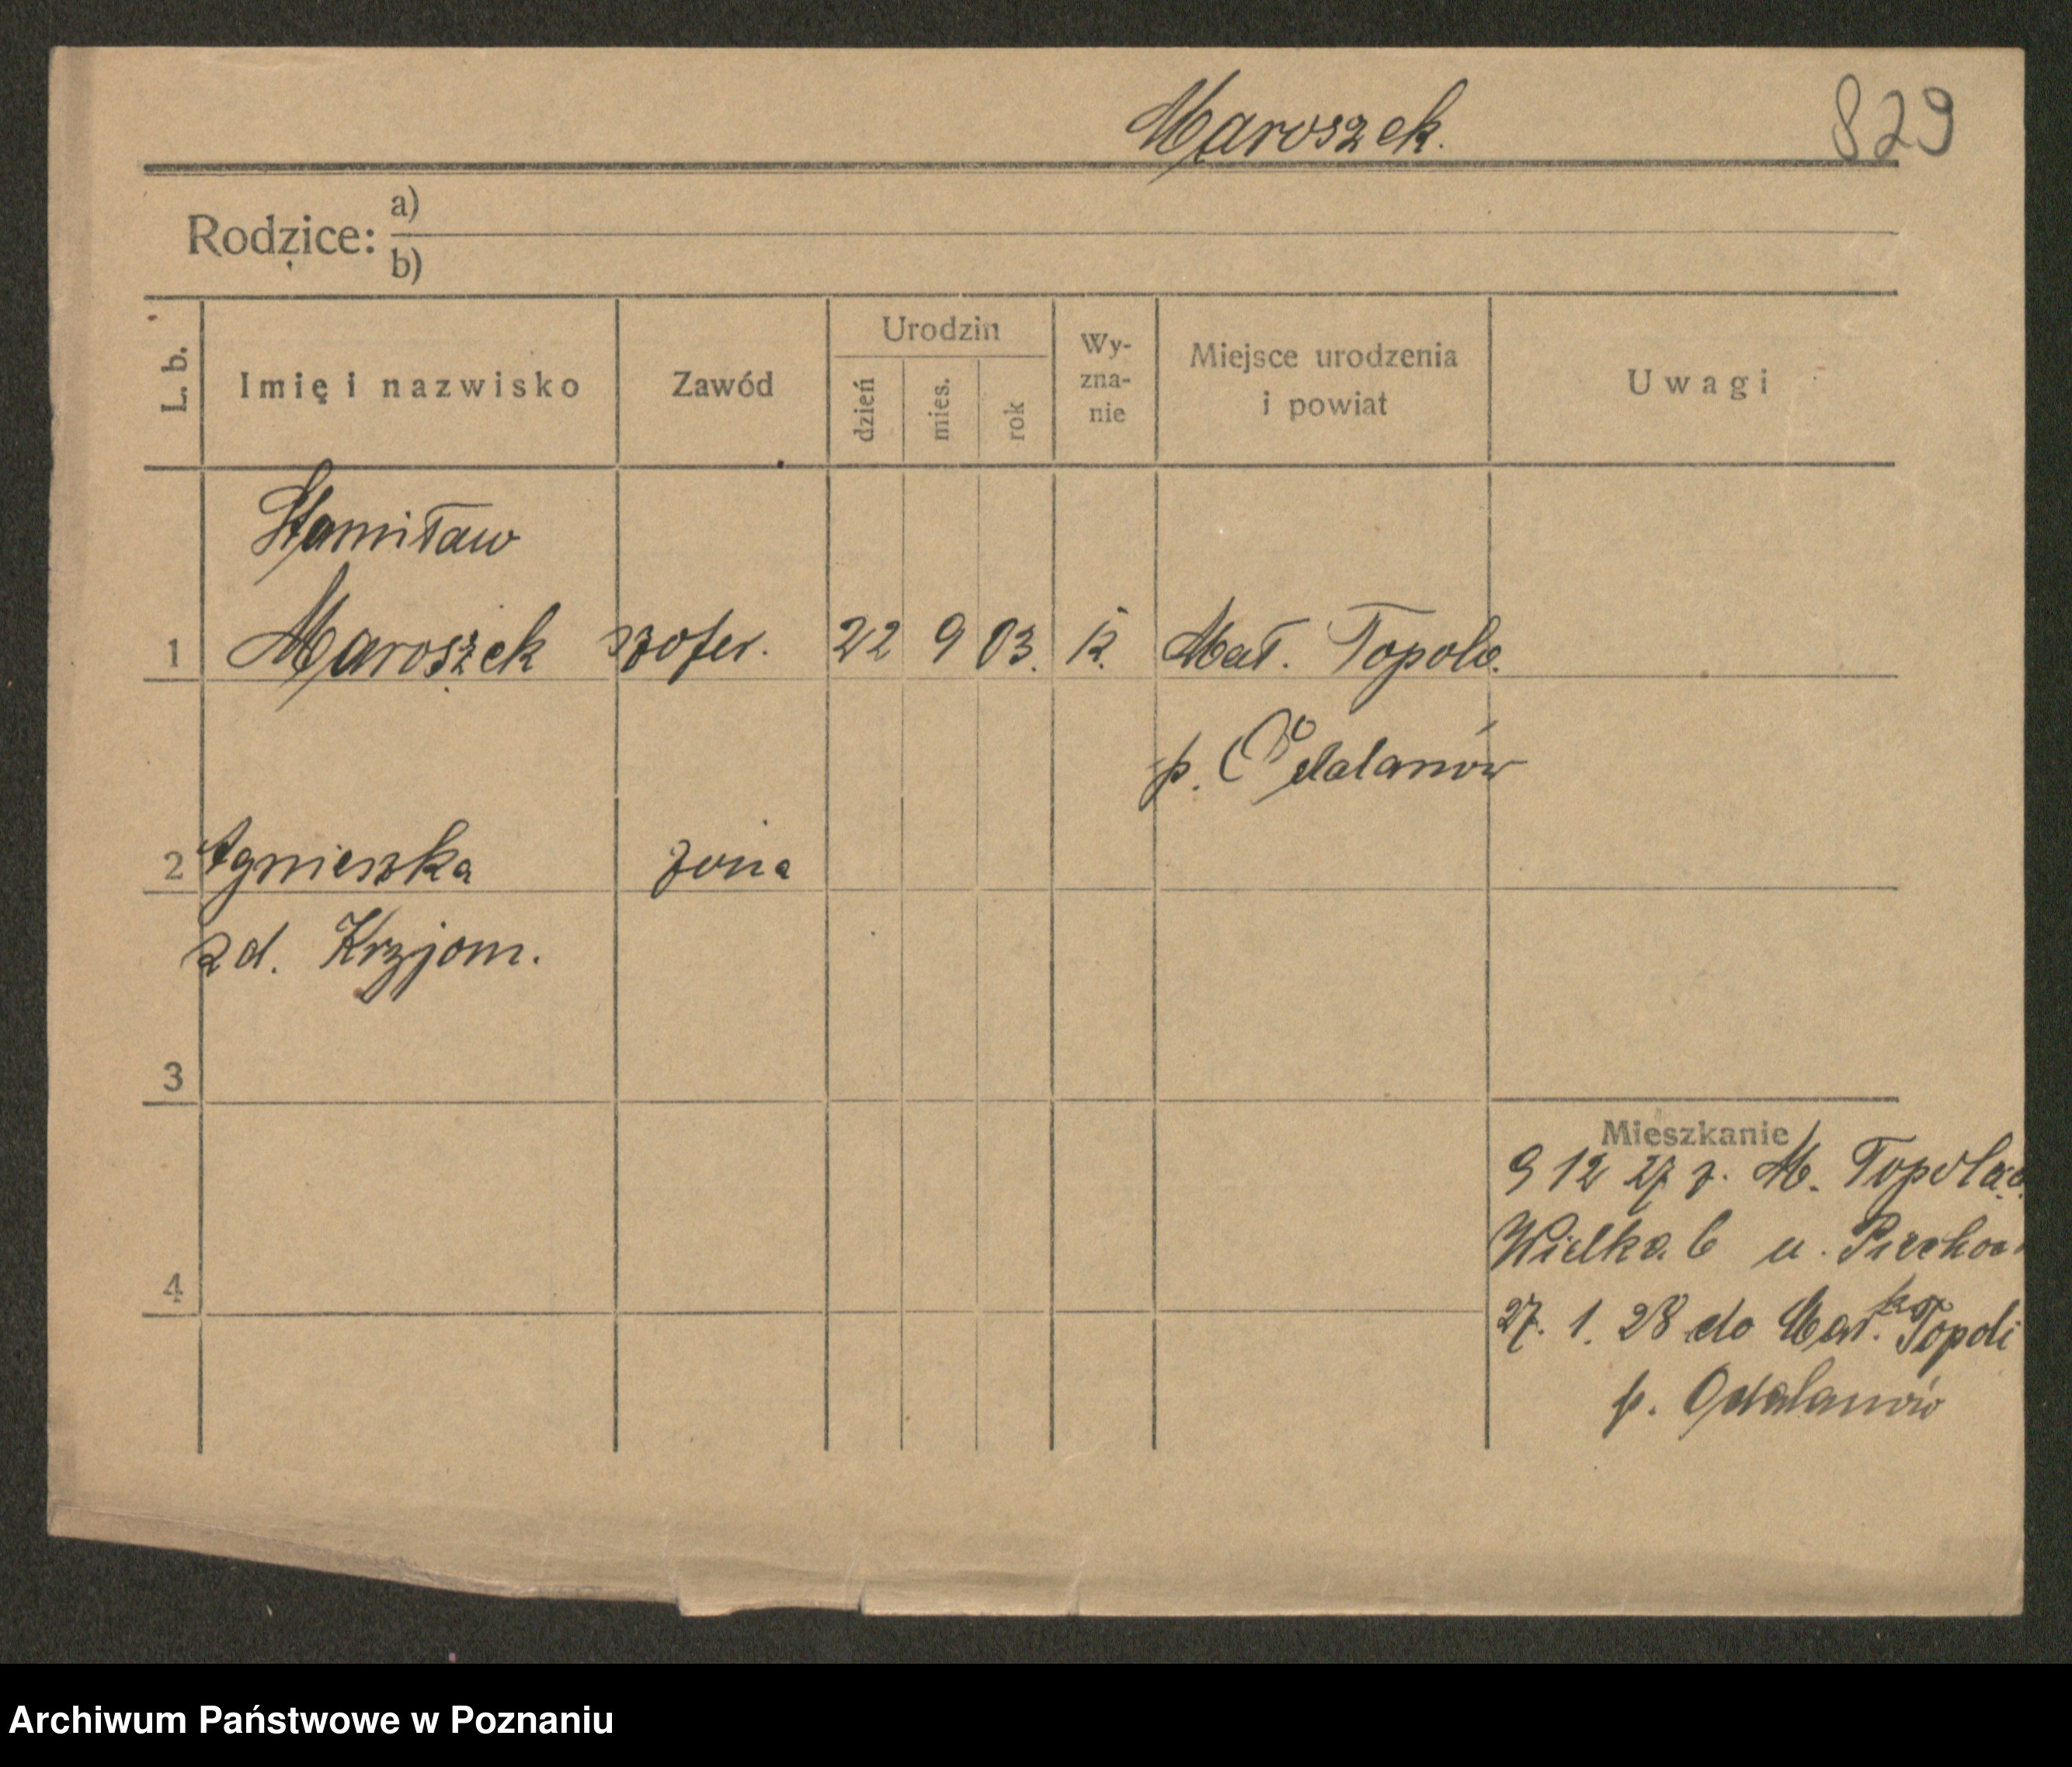 Maroszek.
829
Rodzice: a)
b)
L. b. Imię i nazwisko Zawód Urodzin dzień mies. rok Wy-zna-nie Miejsce urodzenia i powiat Uwagi
Stanisław
1 Maroszek szofer. 22 9 03. k. Mał. Topola.
p. Odolanów
2 Agnieszka żona
zd. Krzjom.
3
Mieszkanie
9 12 27 z. M. Topola
Wielka 6 u.
4
27. 1. 28 do Mał. Topoli
p. Odolanów
Archiwum Państwowe w Poznaniu